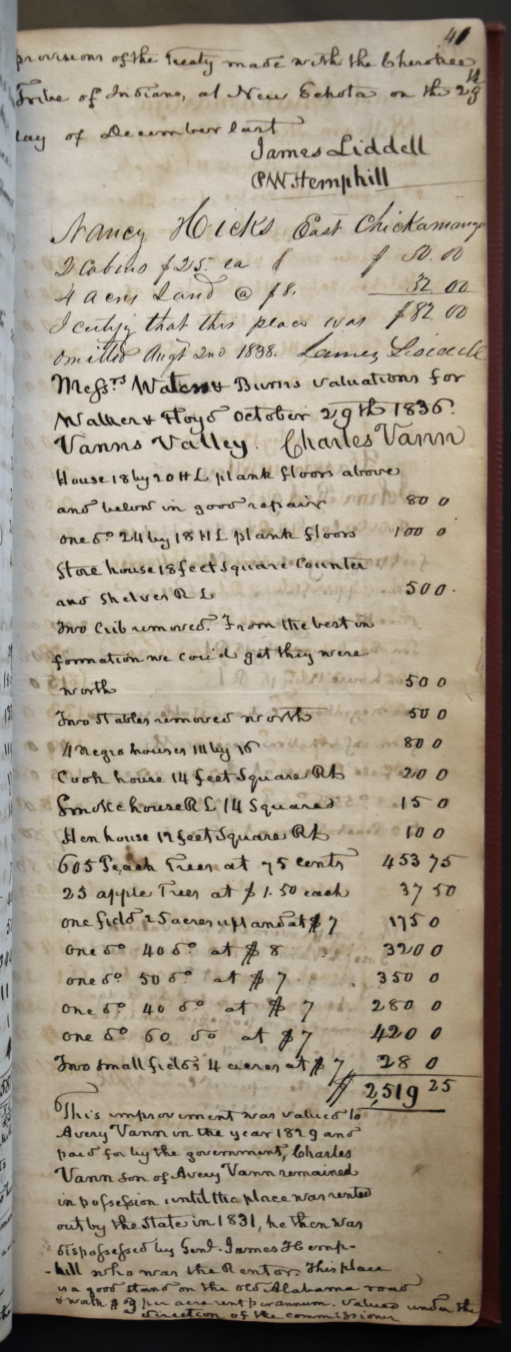 41
provisions of the Treaty made with the Cherokee
Tribe of Indians, at New Echota on the 29th
day of December last
James Liddell
P W Hemphill
Nancy Hicks East Chickamauga
2 Cabins $25. ea $ 50.00
4 acres Land @ $8. 32 00
I certify that this place was $82 00
omitted Augt 2nd 1838. James Liddell
Messrs Waters & Burns valuations for
Walker & Floyd October 29th 1836.
Vanns Valley. Charles Vann
House 18 by 20 H L plank floors above
and below in good repair 80 0
one do 24 by 18 H L plank floors 100 0
Store house 18 feet Square Counter
and Shelves R L 50 0.
Two Crib removed. From the best in
formation we cou'd get they were
worth 50 0
Two Stables removed worth 50 0
4 Negro houses 14 by 16 80 0
Cook house 14 feet Square RL 20 0
Smoke house R L 14 Square 15 0
Hen house 12 feet Square RL 10 0
605 Peach Trees at 75 cents 453 75
25 apple Trees at $1.50 each 37 50
one field 25 acres upland at $7 175 0
one do 40 do at $8 320 0
one do 50 do at $7 350 0
one do 40 do at $7 280 0
one do 60 do at $7 420 0
Two small fields 4 acres at $7 28 0
$2,519 25
This improvement was valued to
Avery Vann in the year 1829 and
paid for by the government, Charles
Vann son of Avery Vann remained
in possession until the place was rented
out by the State in 1831, he then was
dispossessed by Genl. James Hemp-
-hill who was the Rentor. This place
is a good stand on the old Alabama road
& worth $3 per acre rent per annum. Valued under the
direction of the commissioner